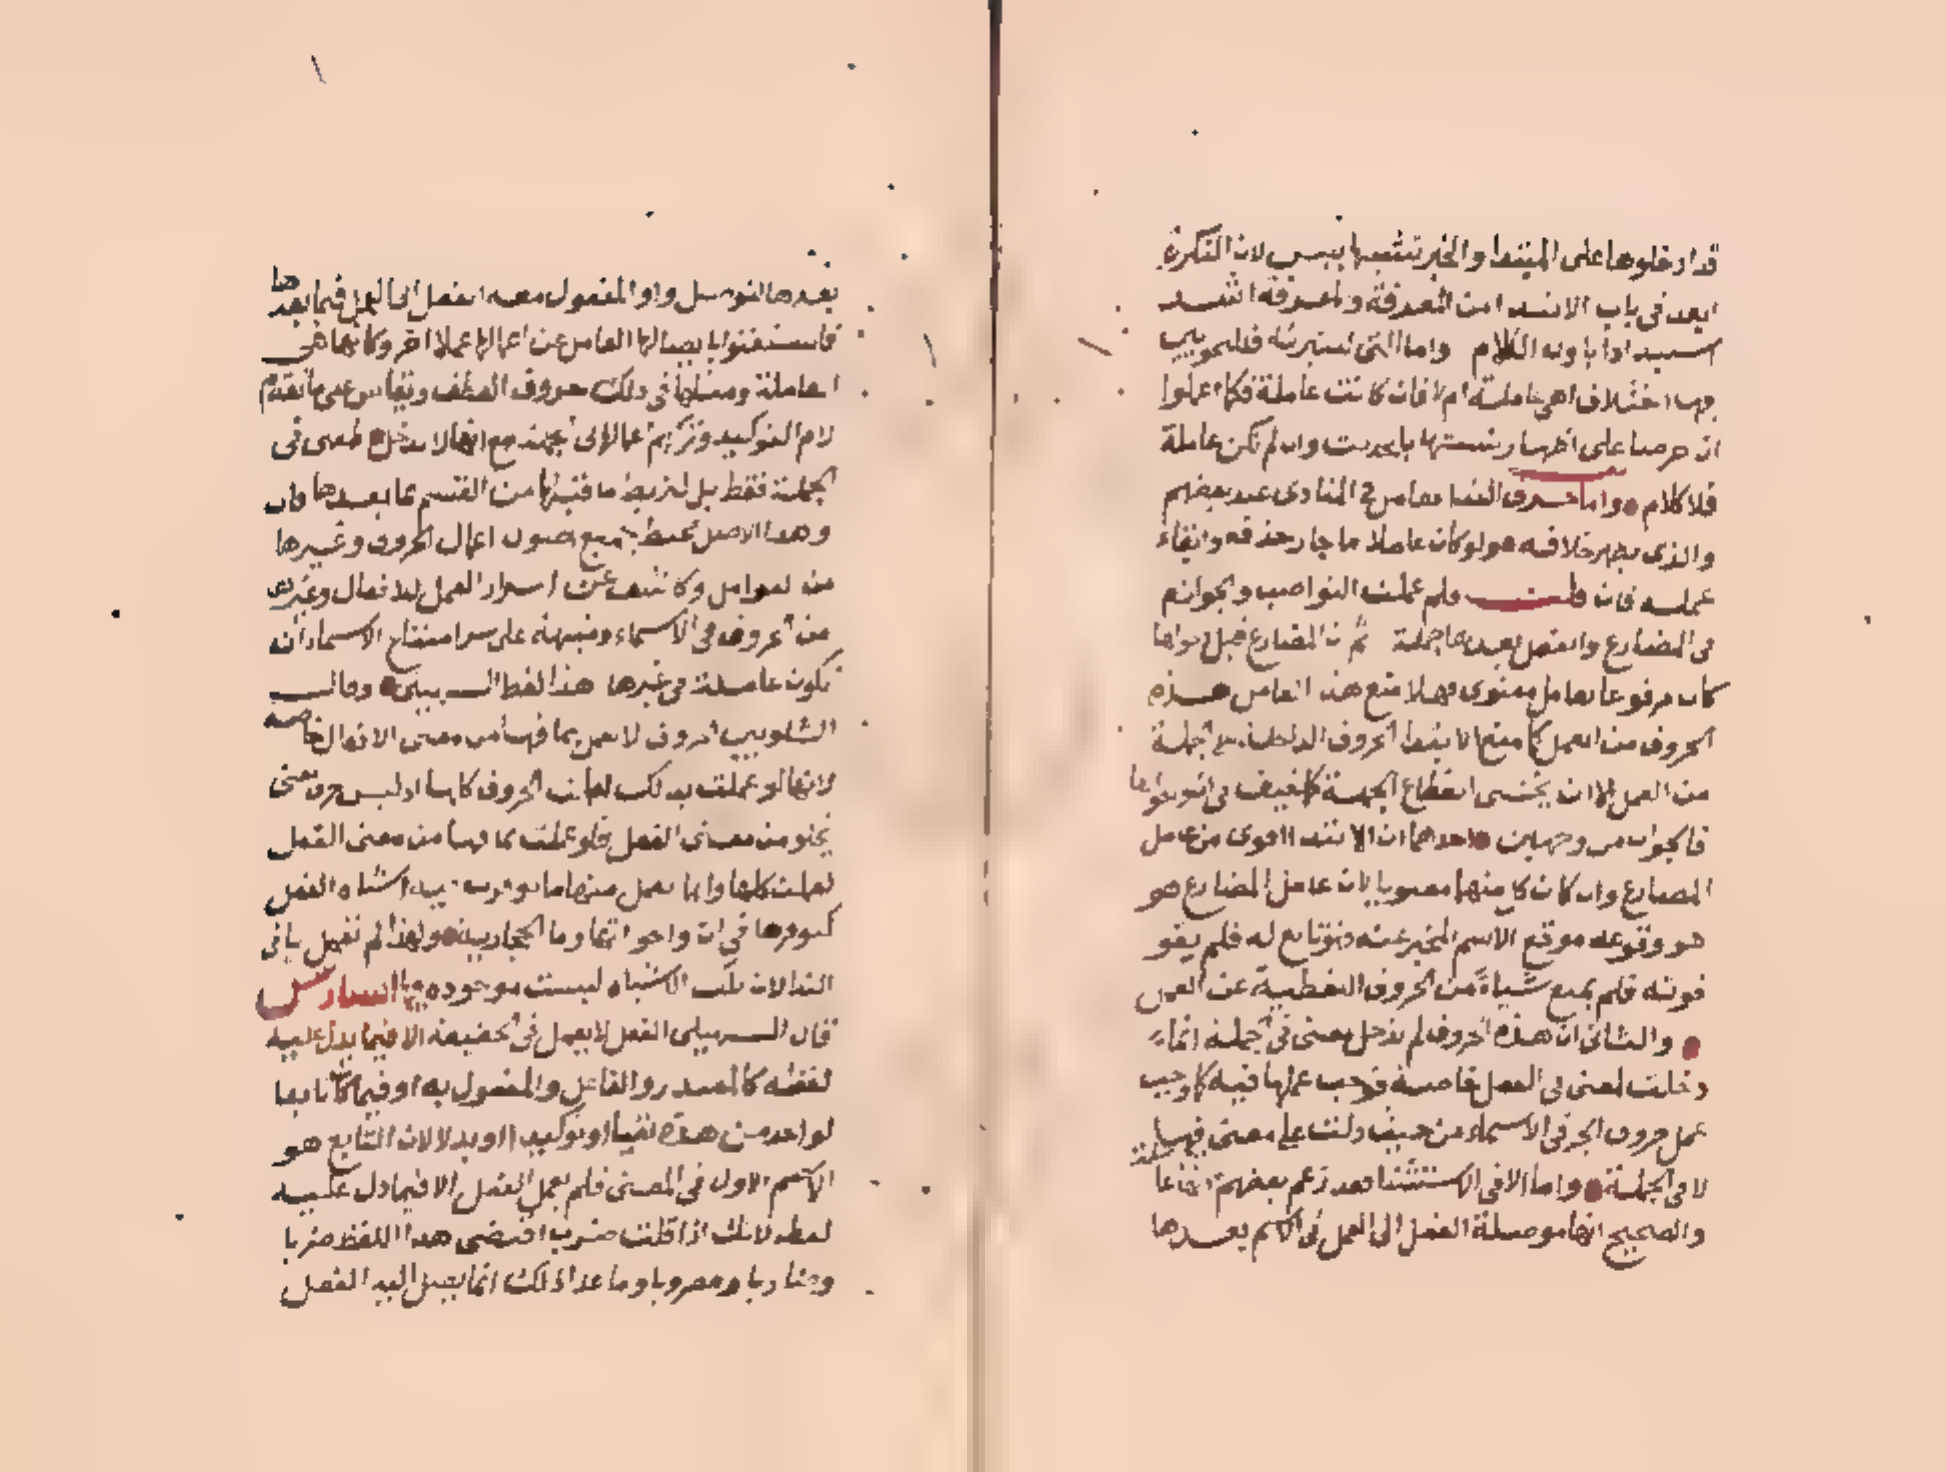 قد ادخلوها على المبتدا والخبر تشبيها بليس لان النكرة
ابعد في باب الابتداء من المعرفة والمعرفة اشد
اذا باوله الكلام واما التي للتبرئة فللنحويين
فيها اختلاف اهي عاملة ام لا فان كانت عاملة فكما اعملوا
ان حرصا على اظهار تشبثها بالحديث وان لم تكن عاملة
فلا كلام واما حرف الندا فعامل في المنادى عند بعضهم
والذي يظهر خلافه هو لو كان عاملا ما جاز حذفه وابقاء
عمله فان قلت فلم عملت النواصب والجوازم
في المضارع والفعل بعدها جملة ثم ان المضارع قبل دخولها
كان مرفوعا بعامل معنوي فهلا منع هذا العامل هذه
الحروف من العمل كما منع الابتدا الحروف الداخلة على الجملة
من العمل الا ان يخشى انقطاع الجملة كما خيف في ان واخواتها
فالجواب من وجهين احدهما ان الابتدا اقوى من عامل
المضارع وان كان كل منهما معنويا لان عامل المضارع هو
هو وقوعه موقع الاسم المخبر عنه فهو تابع له فلم يقو
قوته فلم يمنع شيأ من الحروف اللفظية عن العمل
والثاني ان هذه الحروف لم تدخل لمعنى في الجملة انما
دخلت لمعنى في الفعل خاصة فوجب عملها فيه كما وجب
عمل حروف الجر في الاسماء من حيث دلت على معنى فيها خاصة
لا في الجملة واما الا في الاستثنا فقد زعم بعضهم انها عاملة
والصحيح انها موصلة الفعل الى العمل في الاسم بعدها
بعدها لتوصيل واو المفعول معه الفعل الى العمل فيما بعدها
فاستغنوا بايصالها العامل عن اعمالها عملا اخر وكانها هي
العاملة ومثلها في ذلك حروف العطف ويقاس على ما تقدم
لام التوكيد وتركهم اعمالها في الجملة مع انها لا تدخل لمعنى في
الجملة فقط بل لتربط ما قبلها من القسم بما بعدها فان
وهذا الاصل محيط بجميع اصول اعمال الحروف وغيرها
من العوامل وكاشف عن اسرار العمل للافعال وغيرها
من الحروف في الاسماء ومنبهة على سر امتناع الاسماء ان
تكون عاملة في غيرها هذا لفظ السهيلي وقال
الشلوبين الحروف لا تعمل بما فيها من معنى الافعال خاصة
لانها لو عملت بذلك لعملت الحروف كلها اذ ليس حرف معنى
يخلو من معنى الفعل فلو عملت بما فيها من معنى الفعل
لعملت كلها وانما يعمل منها ما توفرت فيه اشباه الفعل
كتوفرها في ان واخواتها وما الحجازية ولهذا لم تعمل يا في
الندا لان تلك الاشباه ليست موجودة فيها السادس
قال السهيلي الفعل لا يعمل في الحقيقة الا فيما يدل عليه
لفظه كالمصدر والفاعل والمفعول به او فيما كان تابعا
لواحد من هذه نعتا او توكيدا او بدلا لان التابع هو
الاسم الاول في المعنى فلم يعمل الفعل الا فيما دل عليه
لفظه لانك اذا قلت ضرب اقتضى هذا اللفظ ضربا
وضاربا ومضروبا وما عدا ذلك انما يصل اليه الفعل